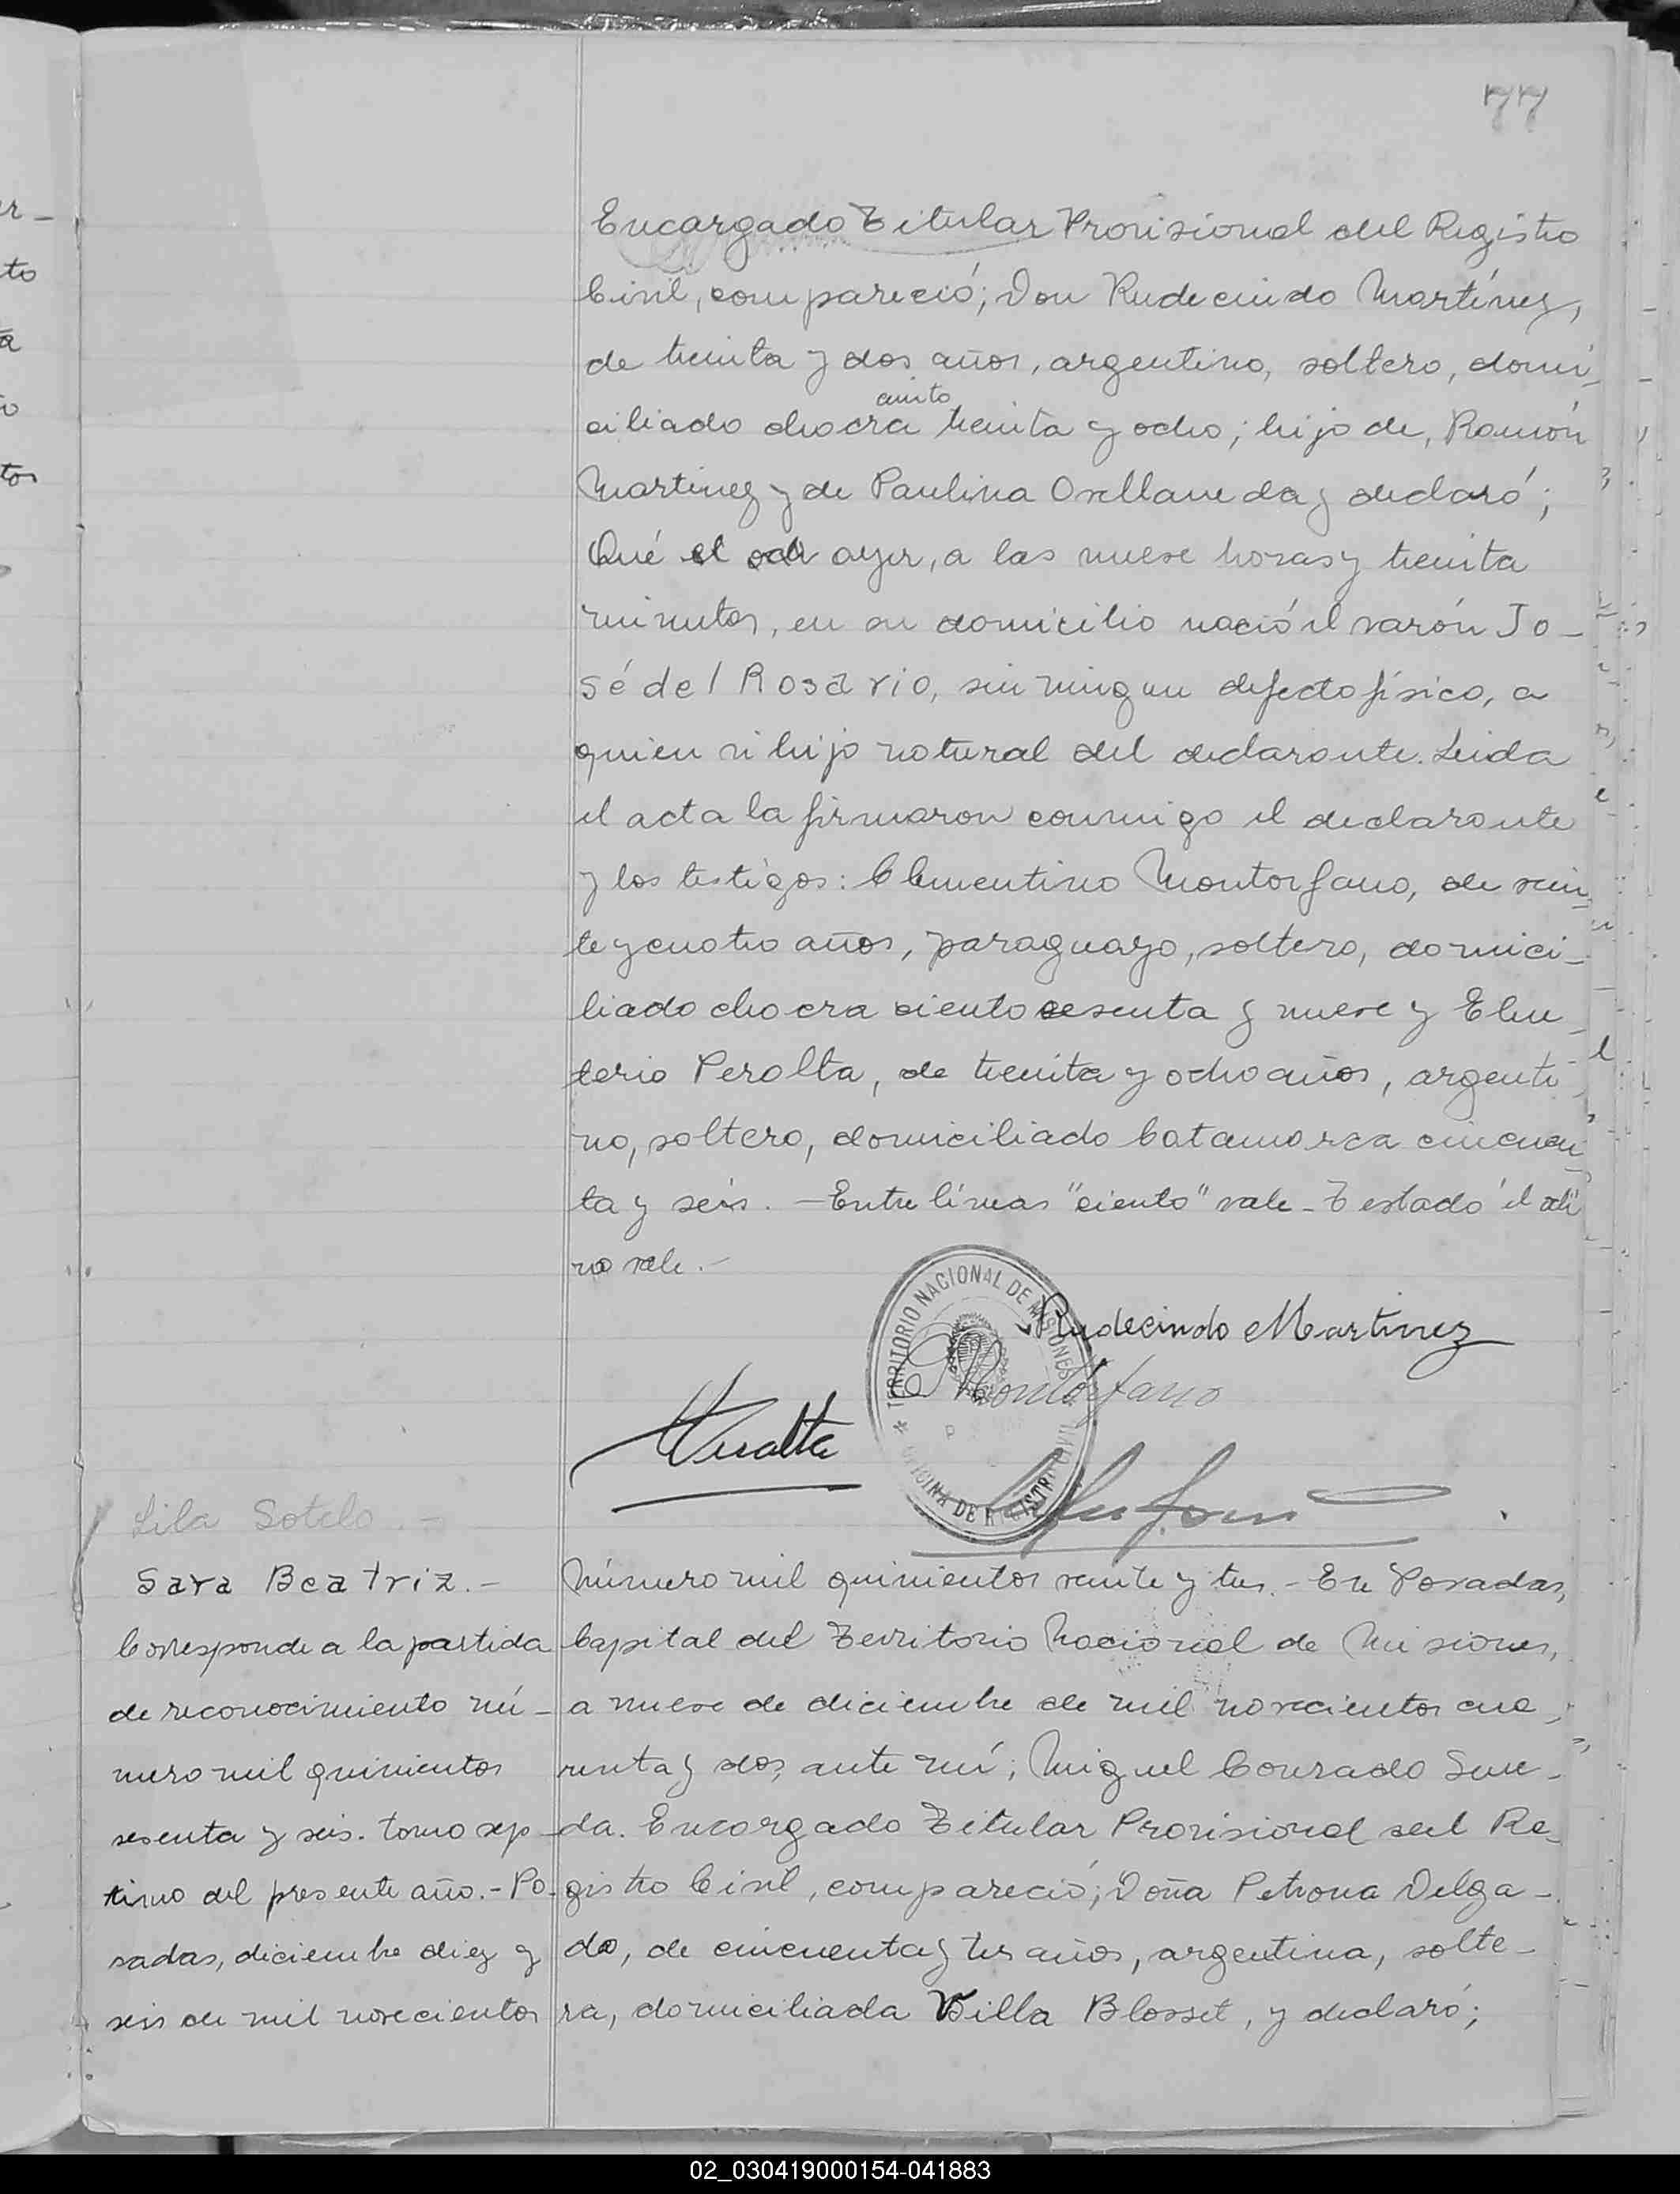 77
Encargado Titular Provisional del Registro
Civil, compareció; Don Rudecindo Martínez,
de treinta y dos años, argentino, soltero, domi-
ciento
ciliado chacra treinta y ocho; hijo de, Ramón
Martinez y de Paulina Orellane da y declaró;
Qué el ayer, a las nueve horas y treinta
minutos, en su domicilio nació el varón Jo-
sé del Rosario, sin ningun defecto físico, a
quien hijo natural del declarante. Leida
el acta la firmaron conmigo el declarante
y los testigos: Clementino Montorfano, de vein-
te y cuatro años, paraguayo, soltero, domici-
liado chacra ciento sesenta y nueve y Eleu-
terio Peralta, de treinta y ocho años, argenti-
no, soltero, domiciliado Catamarca cincuen-
ta y seis. - Entre líneas "ciento" vale - Testado "el
no vale.-
TERRITORIO NACIONAL DE MISIONES
OFICINA DE REGISTRO CIVIL
Rudecindo Martinez
C Montorfano
Peralta
Lila Sotelo.-
Sara Beatriz.-
Corresponde a la partida
de reconocimiento nú-
mero mil quinientos
sesenta y seis. tomo sep-
timo del presente año.- Po-
sadas, diciembre diez y
seis de mil novecientos
Número mil quinientos veinte y tres.- En Posadas,
Capital del Territorio Nacional de Misiones,
a nueve de diciembre de mil novecientos cua-
renta y dos, ante mí; Miguel Conrado
da. Encargado Titular Provisional del Re-
gistro Civil, compareció; Doña Petrona Delga-
do, de cincuenta y tres años, argentina, solte-
ra, domiciliada Villa Blosset, y declaró;
02_030419000154-041883